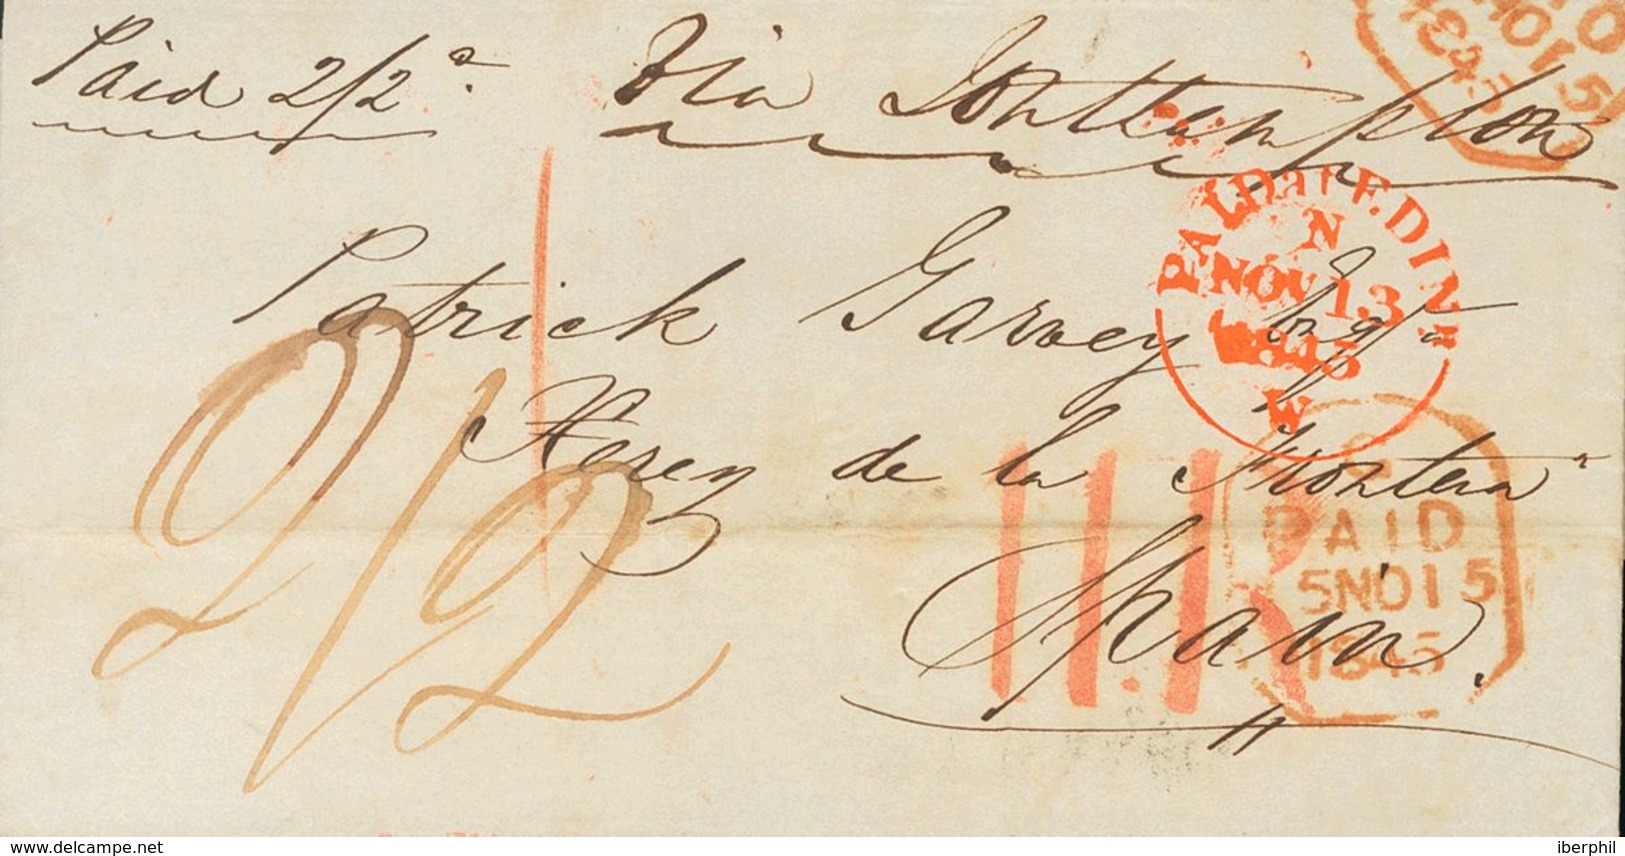 Paid 2/2d. Via Southampton
NO 15
1845
PAID at EDIN
N
NOV 13
1845
W
Patrick Garvey Esqr
Xerez de la Frontera
Spain.
2/2
PAID
5 NO 15
1845
delcampe.net
iberphil